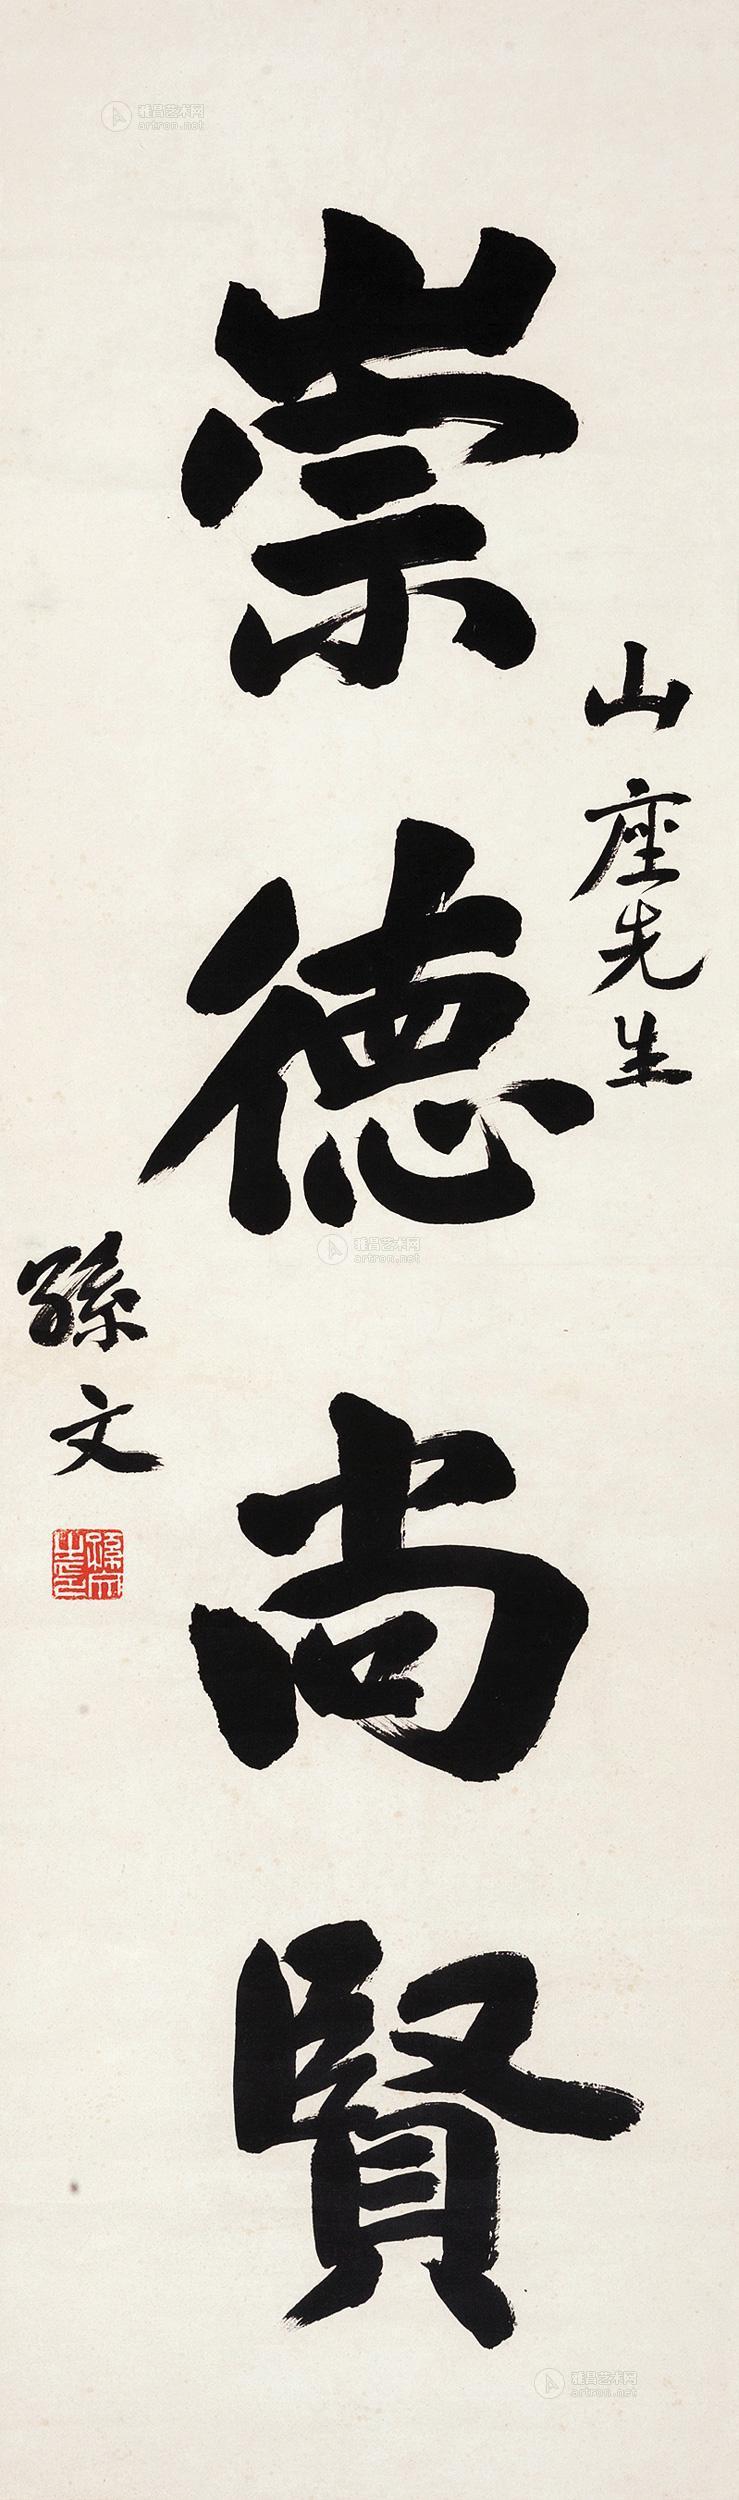 山座先生
崇德尚賢
孫文
孫文之印
雅昌艺术网
artron.net
雅昌艺术网
artron.net
雅昌艺术网
artron.net